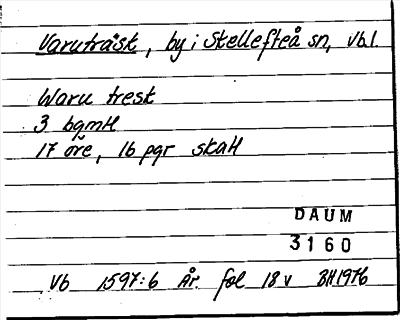 Varuträsk, by i Skellefteå sn, Vbl.
Waru tresk
3 bgmH
17 öre, 16 pgr skatt
DAUM
3160
Vb 1597:6 År. fol 18 v BH1976